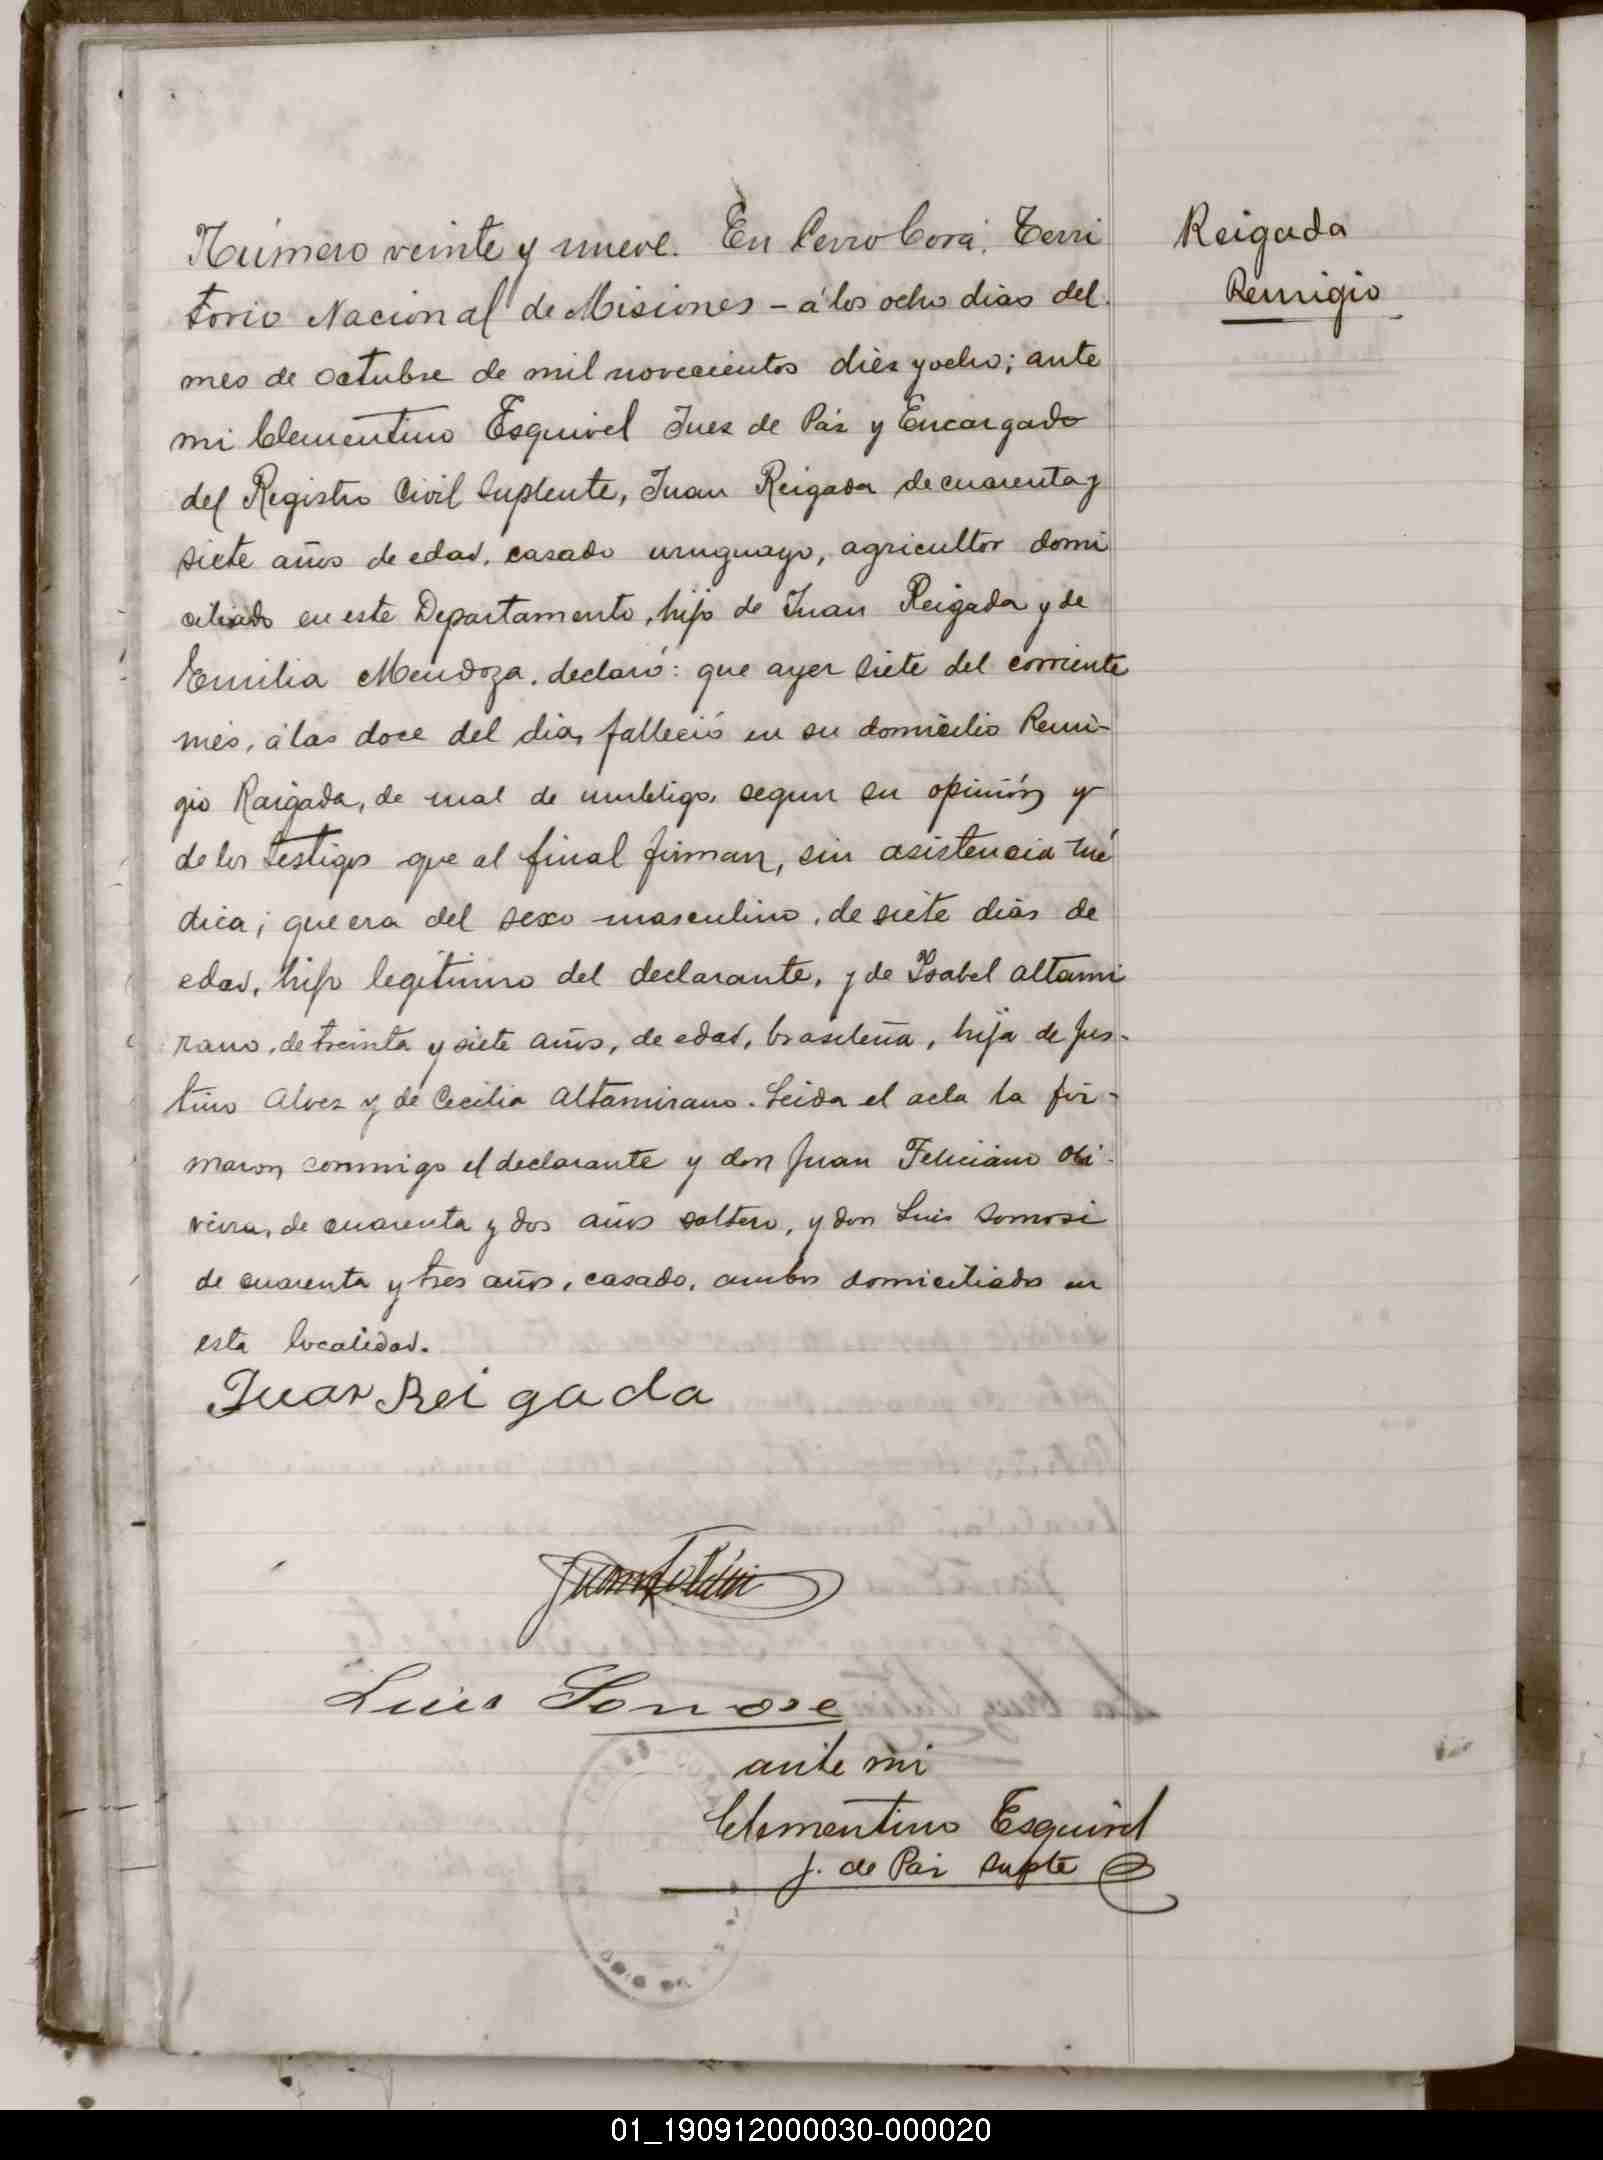 Número veinte y nueve. En Cerro Corá. Terri
torio Nacional de Misiones - á los ocho dias del
mes de octubre de mil novecientos diez y ocho; ante
mi Clementino Esquivel Juez de Páz y Encargado
del Registro Civil Suplente, Juan Reigada de cuarenta y
siete años de edad, casado uruguayo, agricultor domi
ciliado en este Departamento, hijo de Juan Reigada y de
Emilia Mendoza, declaró: que ayer siete del corriente
mes, á las doce del dia, falleció en su domicilio Remi-
gio Raigada, de mal de umbligo, segun su opinión y
de los testigos que al final firman, sin asistencia mé
dica; que era del sexo masculino, de siete dias de
edad, hijo legitimo del declarante, y de Isabel Altami
rano, de treinta y siete años, de edad, brasileña, hija de Jus-
tino Alvez y de Cecilia Altamirano. Leida el acta la fir-
maron conmigo el declarante y don Juan Feliciano Oli
veira, de cuarenta y dos años soltero, y don Luis Somosi
de cuarenta y tres años, casado, ambos domiciliados en
esta localidad.
Juan Reigada
Luis Somose
ante mi
Clementino Esquivel
J. de Páz Supte
Reigada
Remigio
01_190912000030-000020